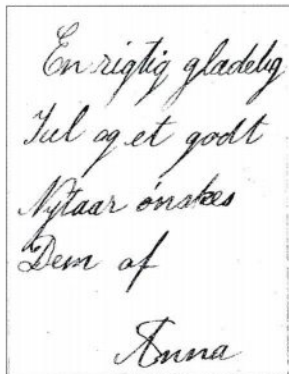 En rigtig glædelig
Jul og et godt
Nytaar ønskes
Dem af
Anna